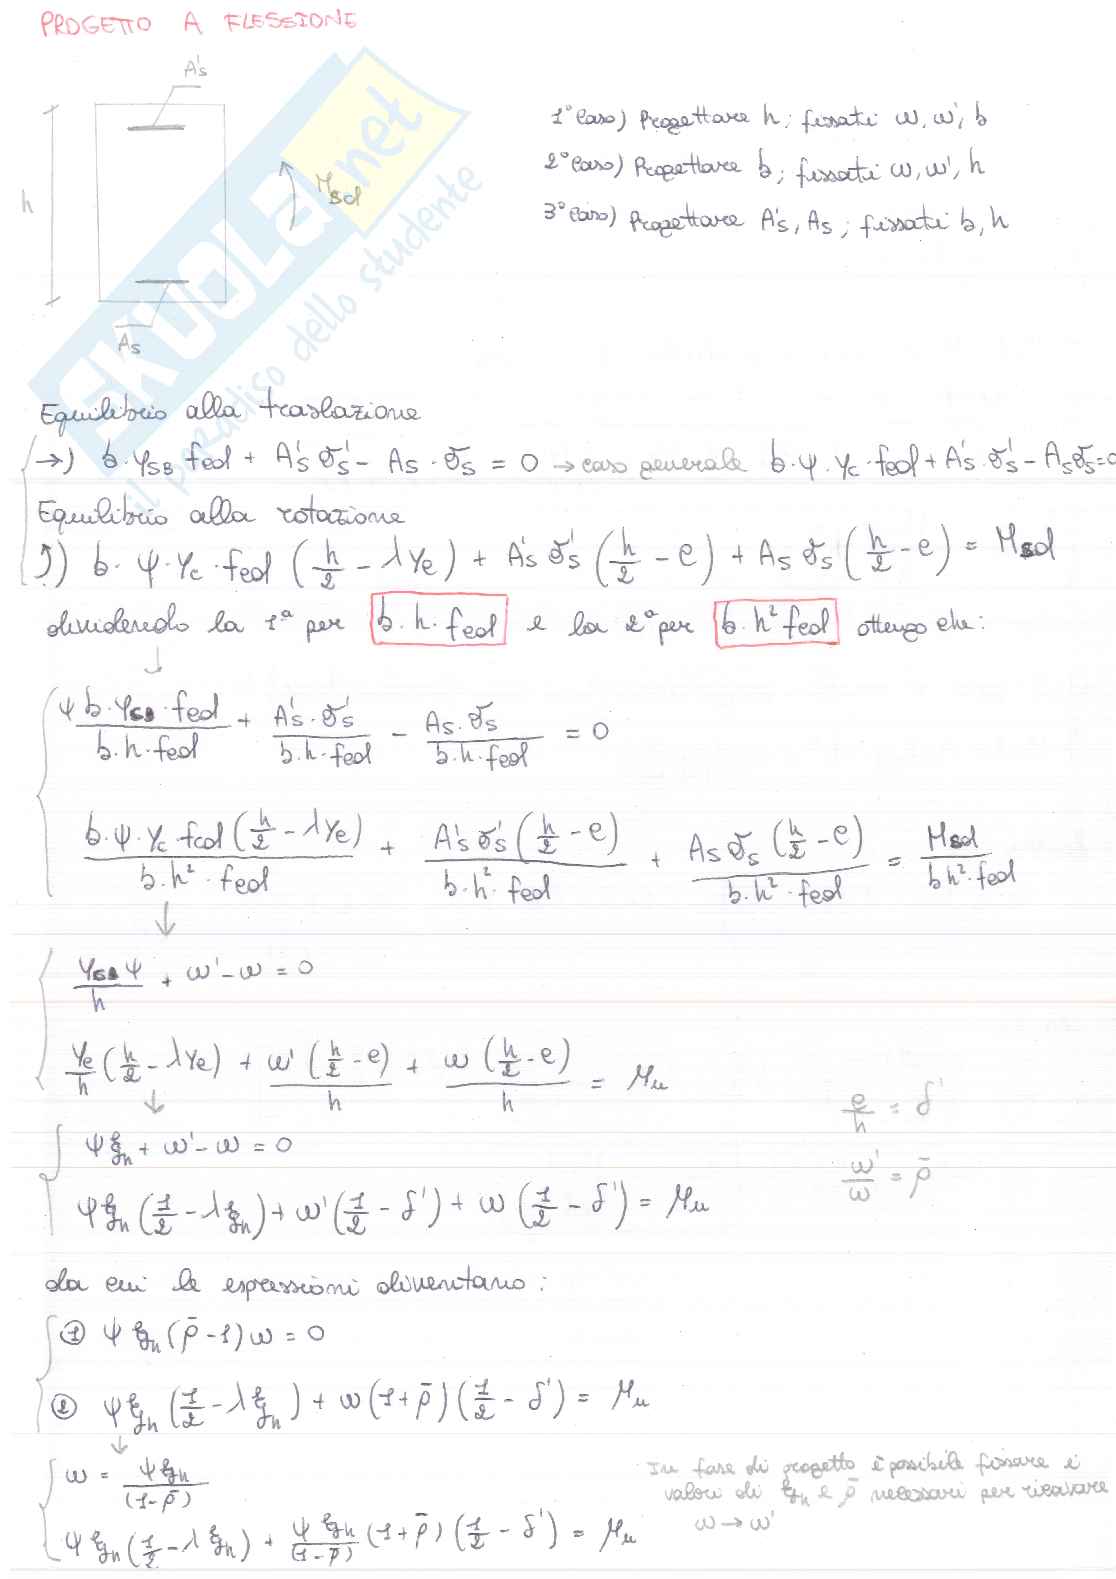 PROGETTO A FLESSIONE
A's
h
Msd
As
1° Caso) Progettare h; fissati ω, ω', b
2° Caso) Progettare b; fissati ω, ω', h
3° Caso) Progettare A's, As; fissati b, h
SKUOLA.net
il paradiso dello studente
Equilibrio alla traslazione
→) b·ψSB fcd + A's σs' - As·σs = 0 → caso generale b·ψ·yc·fcd + A's·σs' - Asσs=0
Equilibrio alla rotazione
↺) b·ψ·yc·fcd (h/2 - λyc) + A's σs' (h/2 - e) + As σs (h/2 - e) = Msd
dividendo la 1ª per b·h·fcd e la 2ª per b·h² fcd ottengo che:
↓
ψ b·ySB·fcd / b·h·fcd + A's·σs' / b·h·fcd - As·σs / b·h·fcd = 0
b·ψ·yc fcd (h/2 - λyc) / b·h²·fcd + A's σs' (h/2 - e) / b·h²·fcd + As σs (h/2 - e) / b·h²·fcd = Msd / bh²·fcd
↓
ySB ψ / h + ω' - ω = 0
yc/h (h/2 - λyc) + ω' (h/2 - e) / h + ω (h/2 - e) / h = μu
e/h = δ'
↓
ψ ξn + ω' - ω = 0
ω'/ω = ρ̄
ψ ξn (1/2 - λξn) + ω' (1/2 - δ') + ω (1/2 - δ') = μu
da cui le espressioni diventano:
① ψ ξn (ρ̄ - 1) ω = 0
② ψ ξn (1/2 - λ ξn) + ω (1 + ρ̄) (1/2 - δ') = μu
↓
ω = ψ ξn / (1 - ρ̄)
ψ ξn (1/2 - λ ξn) + ψ ξn / (1 - ρ̄) (1 + ρ̄) (1/2 - δ') = μu
In fase di progetto è possibile fissare i
valori di ξn e ρ̄ necessari per ricavare
ω → ω'